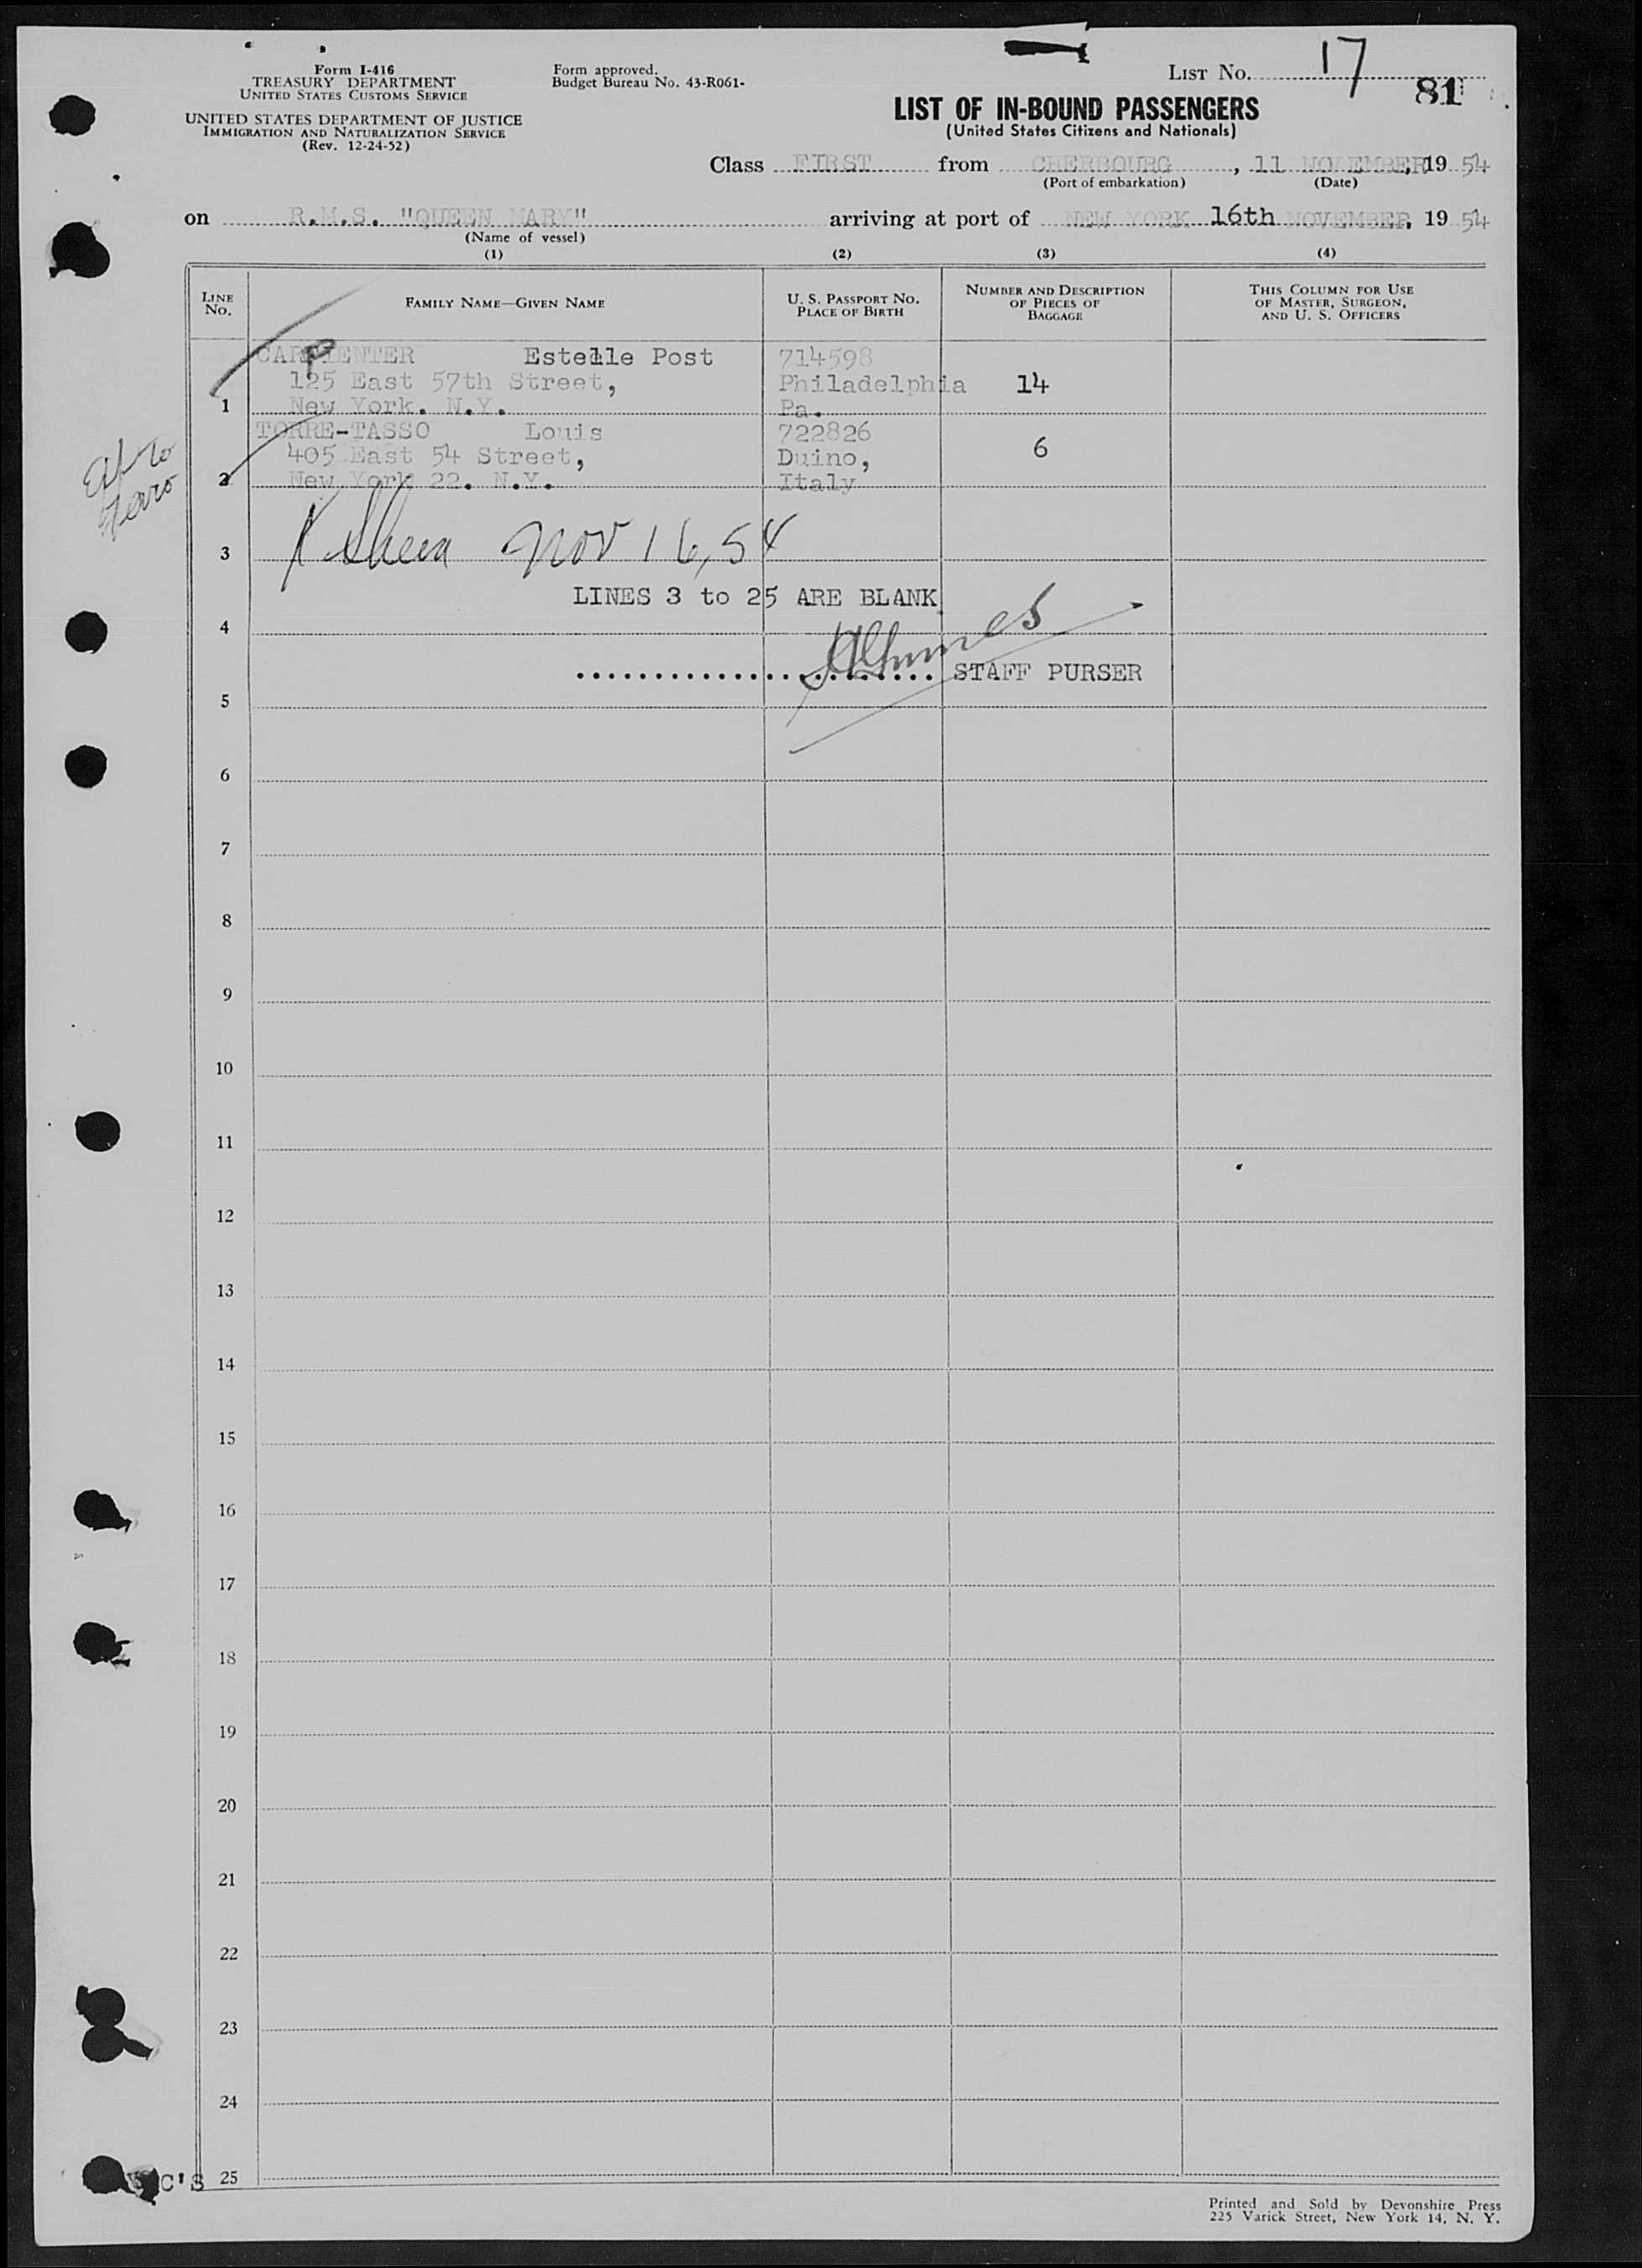 Form I-416
TREASURY DEPARTMENT
UNITED STATES CUSTOMS SERVICE
UNITED STATES DEPARTMENT OF JUSTICE
IMMIGRATION AND NATURALIZATION SERVICE
(Rev. 12-24-52)
Form approved.
Budget Bureau No. 43-R061-
LIST No. 17
81
LIST OF IN-BOUND PASSENGERS
(United States Citizens and Nationals)
Class FIRST from CHERBOURG, 11 NOVEMBER, 19 54
(Port of embarkation) (Date)
on R.M.S. "QUEEN MARY" arriving at port of NEW YORK 16th NOVEMBER, 19 54
(Name of vessel)
(1) (2) (3) (4)
LINE No. FAMILY NAME—GIVEN NAME U. S. PASSPORT No. PLACE OF BIRTH NUMBER AND DESCRIPTION OF PIECES OF BAGGAGE THIS COLUMN FOR USE OF MASTER, SURGEON, AND U. S. OFFICERS
CARPENTER Estelle Post 714598
125 East 57th Street, Philadelphia 14
1 New York. N.Y. Pa.
TORRE-TASSO Louis 722826
405 East 54 Street, Duino, 6
2 New York 22. N.Y. Italy
3 Nov 16, 54
LINES 3 to 25 ARE BLANK
4
STAFF PURSER
5
6
7
8
9
10
11
12
13
14
15
16
17
18
19
20
21
22
23
24
25
Printed and Sold by Devonshire Press
225 Varick Street, New York 14, N. Y.